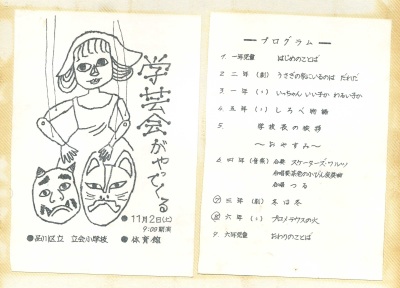 学芸会がやってくる
● 11月2日(土)
9:00 開演
● 品川区立 立会小学校 ● 体育館
― プログラム ―
1. 一年児童 はじめのことば
2. 二年 (劇) うさぎの家にいるのは だれだ
3. 一年 (〃) いっちゃん いい子か わるい子か
4. 五年 (〃) しろべ物語
5. 学校長の挨拶
～おやすみ～
6. 四年 (音楽) 合奏 スケーターズ・ワルツ
合唱
合唱 つる
⑦ 三年 (劇) 冬は冬
⑧ 六年 (〃) プロメテウスの火
9. 六年児童 おわりのことば